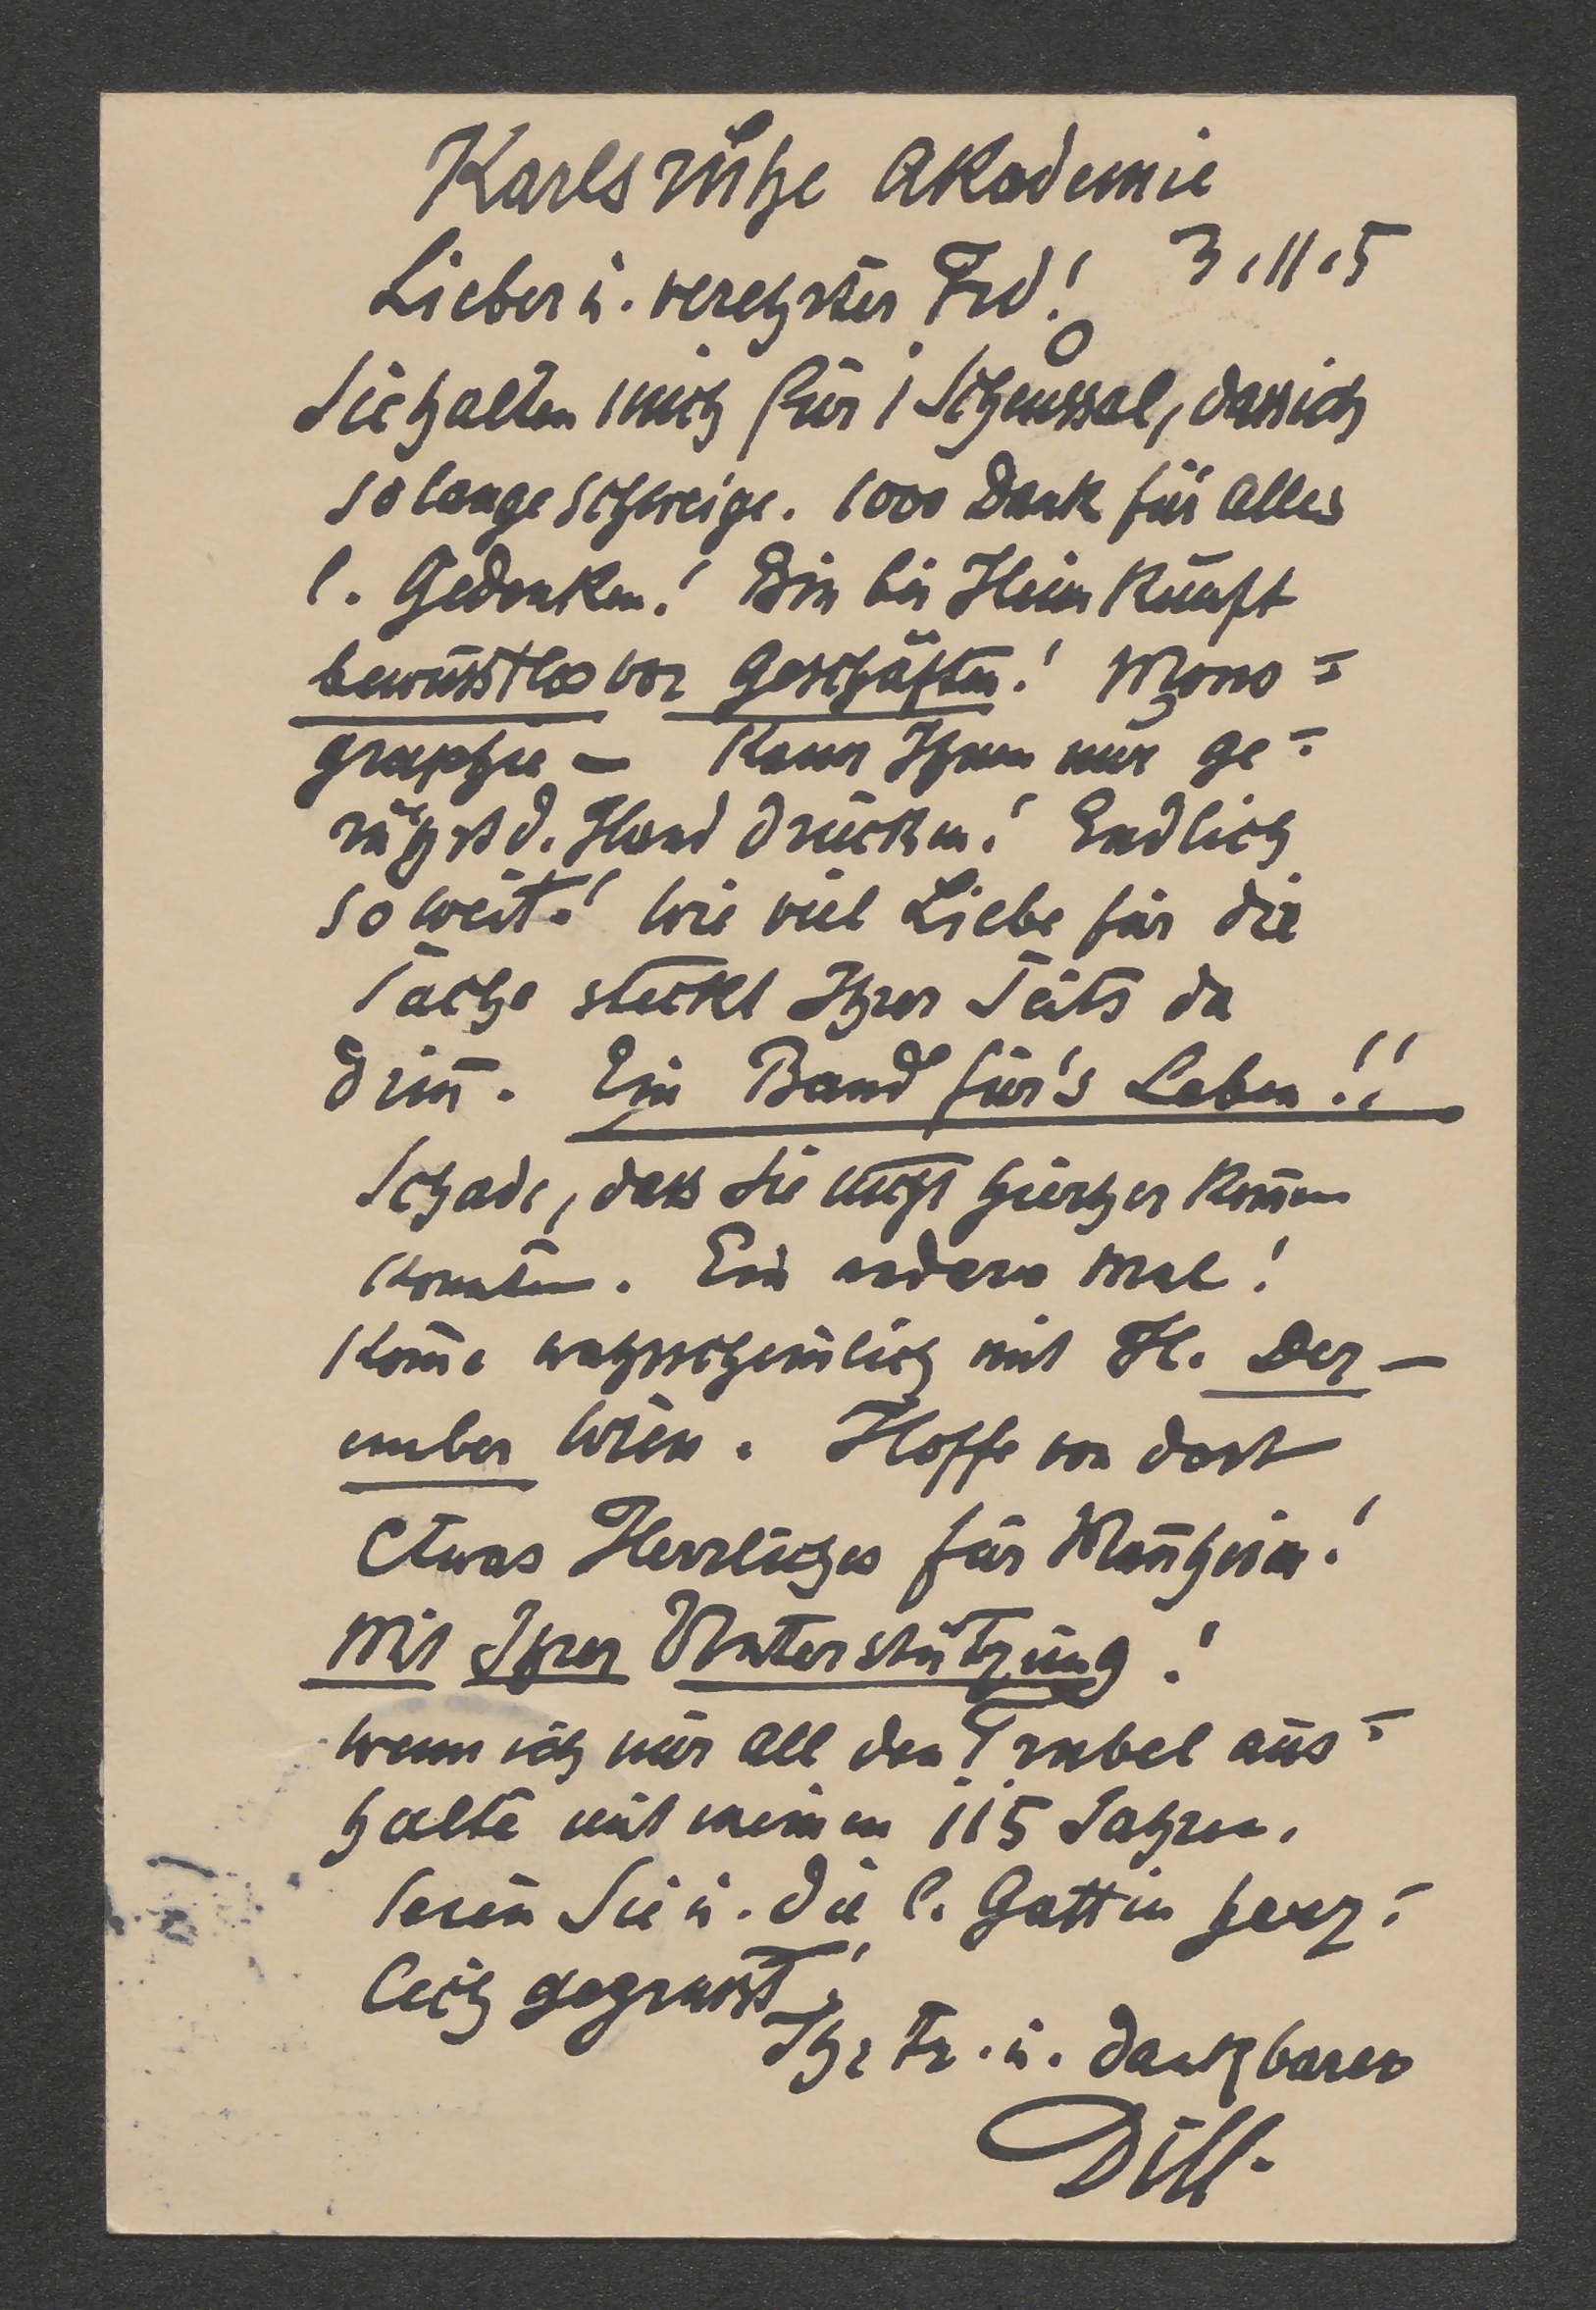 Karlsruhe Akademie
Lieber u. verehrter Frd! 3.11.5
Sie halten mich für 1 Scheussal, dass ich
so lange schweige. 1000 Dank für alles
l. Gedenken! Bin bei Heimkunft
bewusstlos vor Geschäften! Mono=
graphie — Kann Ihnen nur ge=
rührt d. Hand drücken! Endlich
so weit! Wie viel Liebe für die
Sache steckt Ihrer Seits da
drin̄. Ein Band für's Leben!!
Schade, dass Sie nicht hierher kom̄en
konnten. Ein andern Mal!
Kom̄e wahrscheinlich mit H. Der-
nuber Wien. Hoffe von dort
etwas Herrliches für Man̄heim!
Mit Ihrer Unterstützung!
Wenn ich nur all den Trubel aus=
halte mit meinen 115 Jahren.
Seien Sie u. die l. Gattin herz=
lich gegrüsst!
Ihr tr. u. dankbarer
Dill.